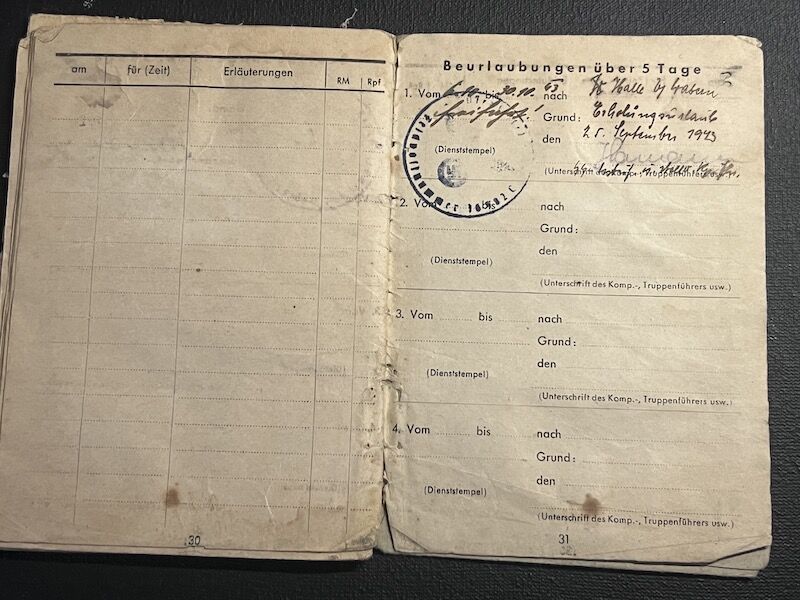 am für (Zeit) Erläuterungen RM Rpf
30
Beurlaubungen über 5 Tage
1. Vom bis 30.10.43 nach Halle
Grund: Erholungsurlaub
den 25. September 1943
(Dienststempel)
(Unterschrift des Komp.-, Truppenführers usw.)
Feldpostnummer
2. Vom bis nach
Grund:
den
(Dienststempel)
(Unterschrift des Komp.-, Truppenführers usw.)
3. Vom bis nach
Grund:
den
(Dienststempel)
(Unterschrift des Komp.-, Truppenführers usw.)
4. Vom bis nach
Grund:
den
(Dienststempel)
(Unterschrift des Komp.-, Truppenführers usw.)
31